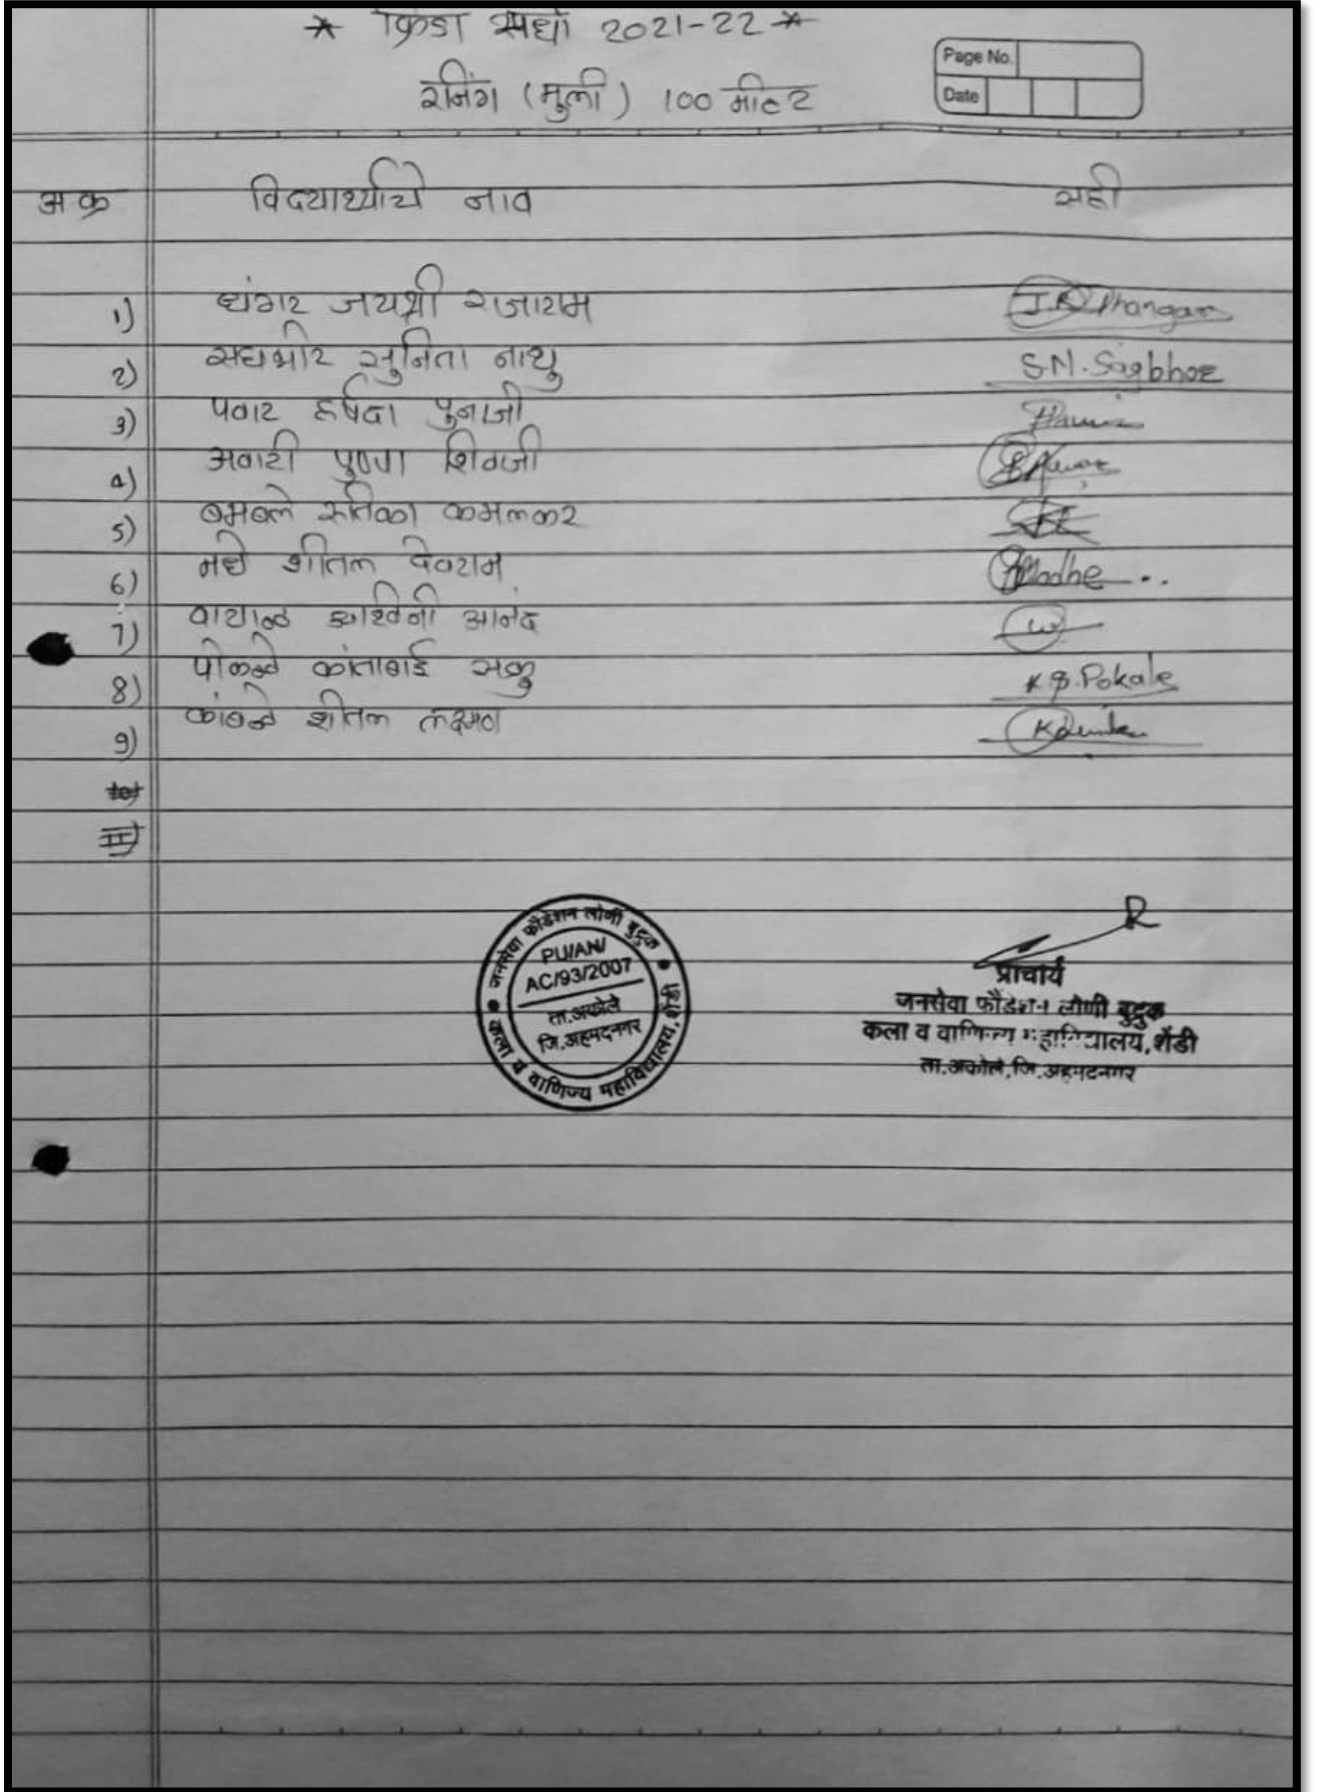 * क्रिडा स्पर्धा 2021-22 *
रनिंग (मुली) 100 मीटर
Page No.
Date
अ क्र विद्यार्थ्याचे नाव सही
1) धंगर जयश्री राजाराम J.R. Dhangar
2) सघभोर सुनिता नाथु S.N. Sagbhor
3) पवार हर्षदा पुनाजी
4) अवारी पुष्पा शिवाजी
5) बमबले कमलकर
6) मधे शीतल देवराम Madhe
7) वायाळ अश्विनी आनंद
8) पोकळे कांताबाई सकु K.S. Pokale
9) कांबळे शीतल लक्ष्मण
10)
11)
जनसेवा फौंडेशन लोणी बुद्रुक
कला व वाणिज्य महाविद्यालय, शेंडी
PU/AN/
AC/93/2007
ता.अकोले
जि.अहमदनगर
प्राचार्य
जनसेवा फौंडेशन लोणी बुद्रुक
कला व वाणिज्य महाविद्यालय, शेंडी
ता.अकोले, जि.अहमदनगर